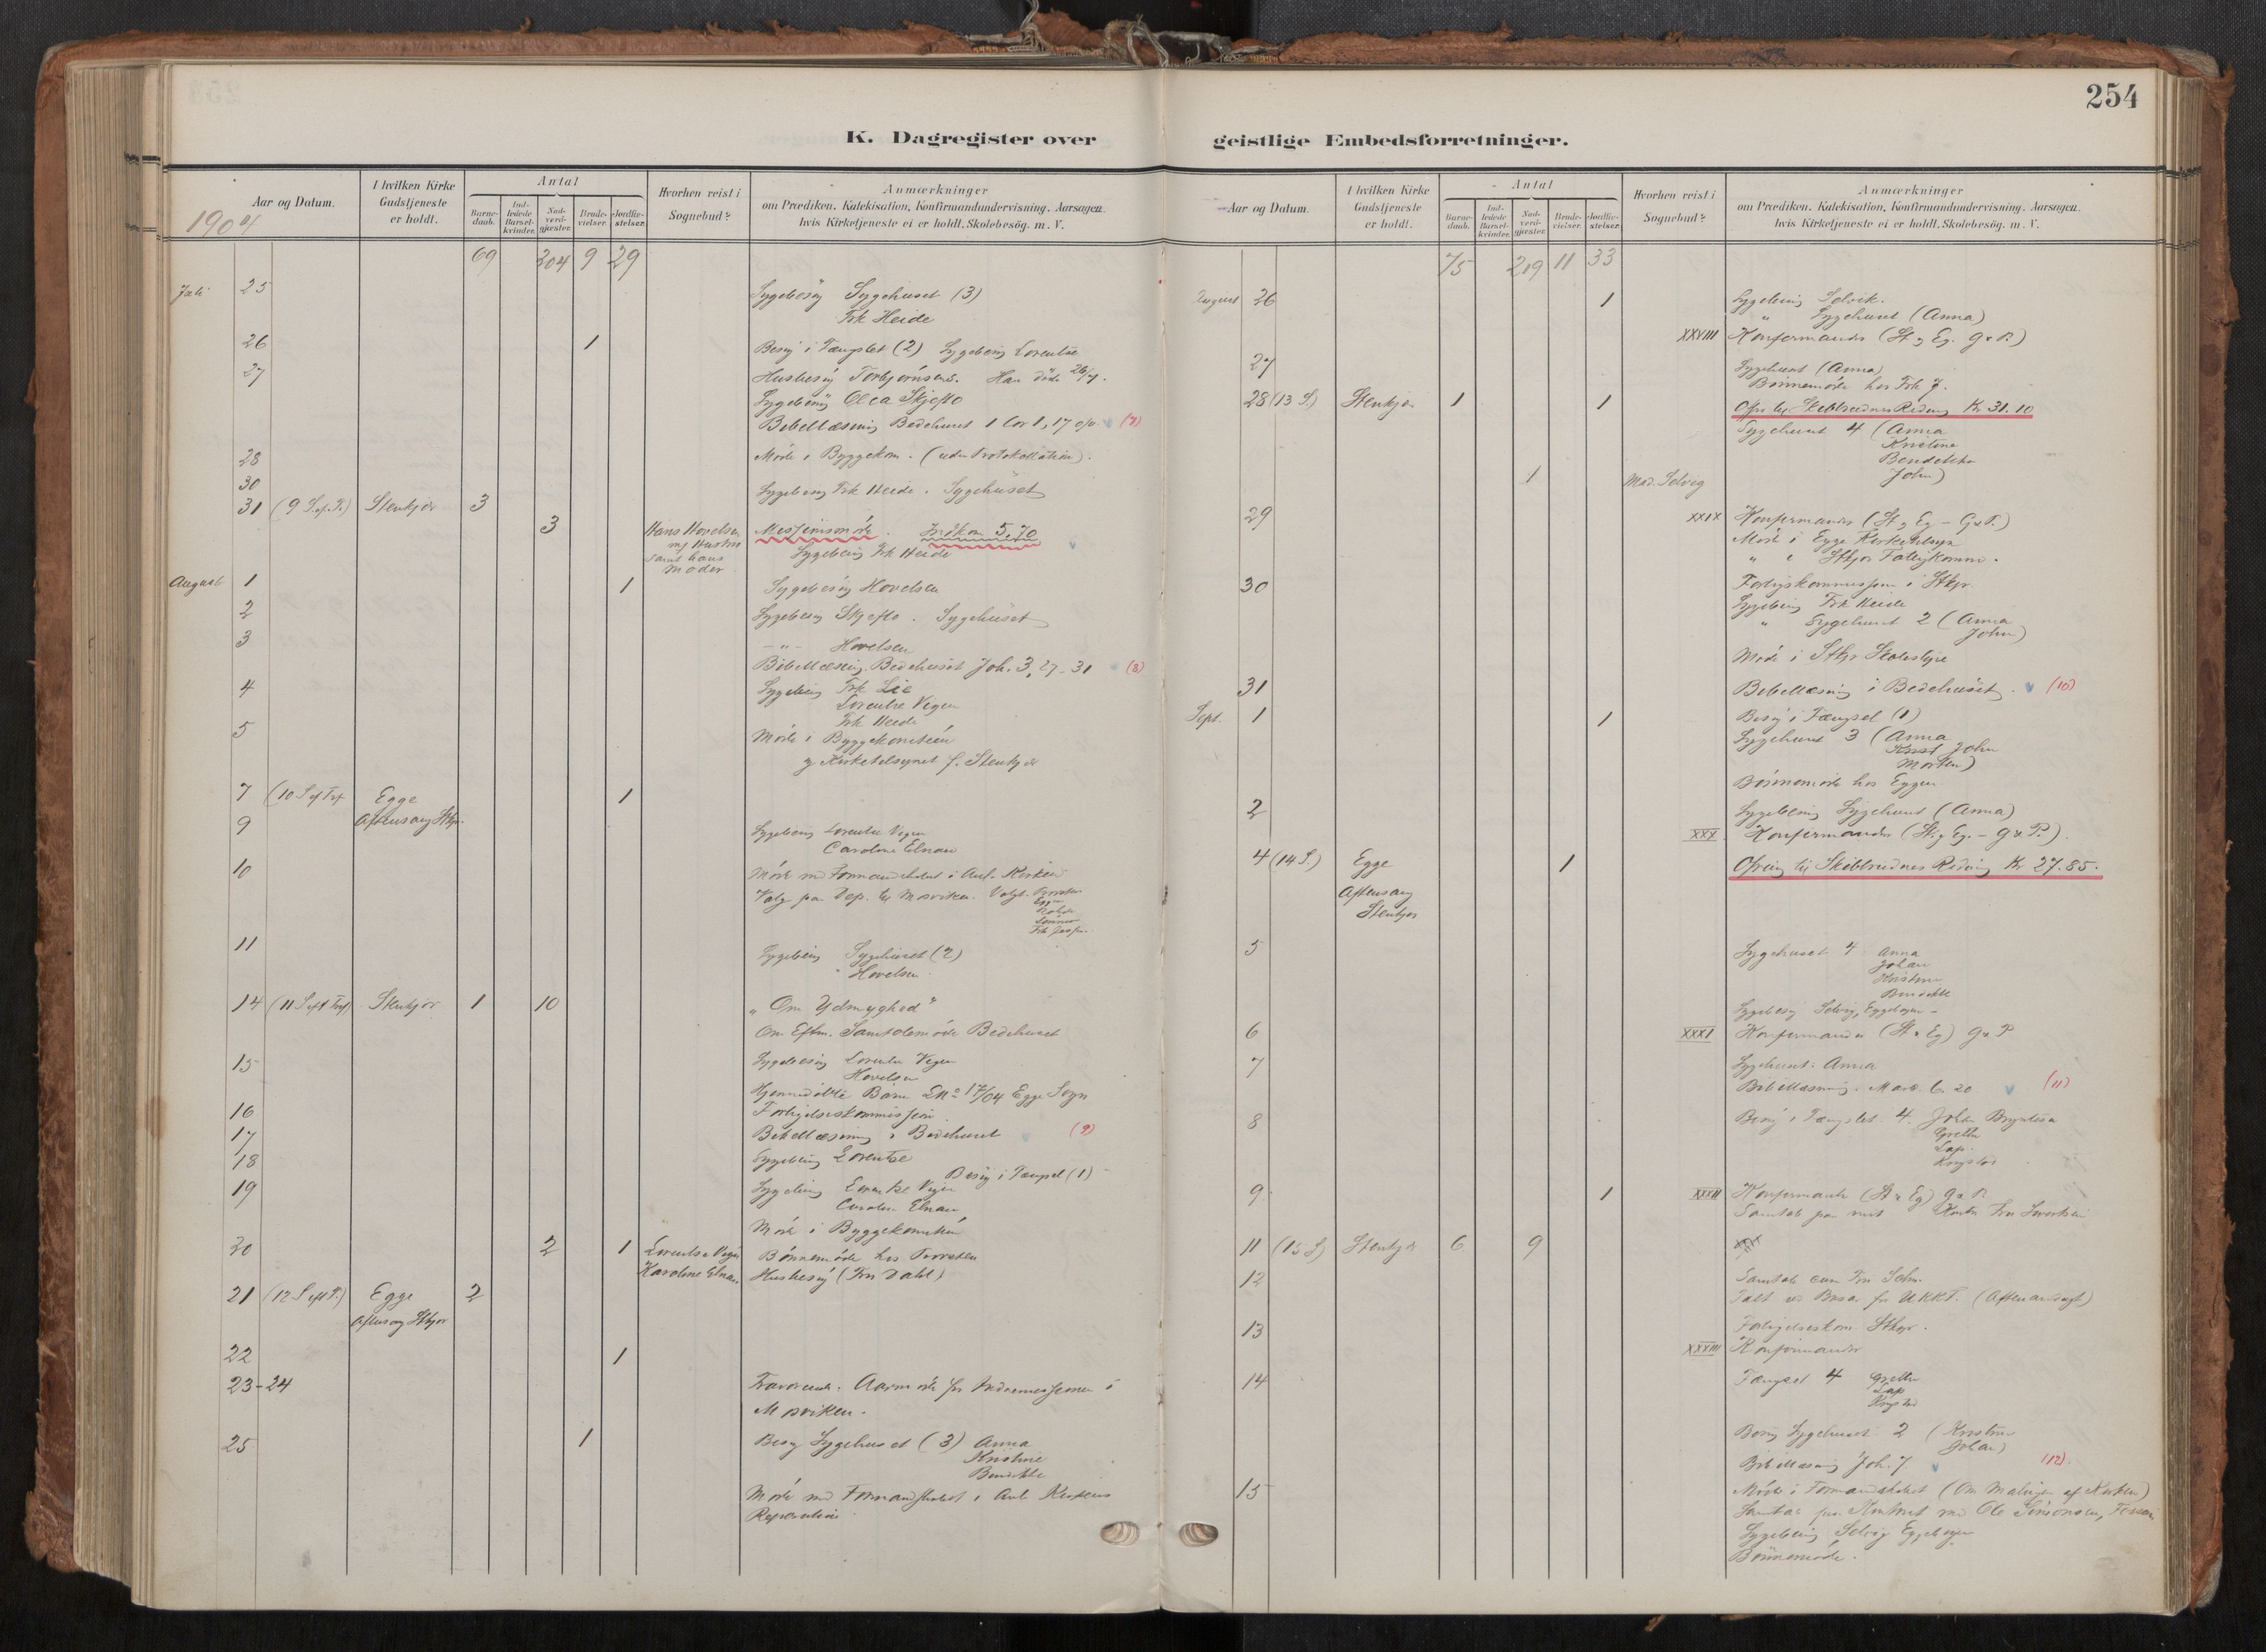 254
K. Dagregister over geistlige Embedsforretninger.
Aar og Datum.
I hvilken Kirke Gudstjeneste er holdt.
Antal
Barne-daab.
Ind-ledede Barsel-kvinder.
Nad-verd-gjæster.
Brude-vielser.
Jordfæ-stelser.
Hvorhen reist i Sognebud?
Anmærkninger
om Prædiken. Katekisation, Konfirmandundervisning. Aarsagen.
hvis Kirketjeneste ei er holdt. Skolebesög. m. V.
1904
69 204 9 29
Juli 25 Sygebesög Sygehuset (3)
Frk Heide
26 1 Besög i Fængslet (2) Sygebesög Lorentse
27 Husbesög Torbjörnsens. Han döde 26/7.
Sygebesög Olea Skjefto
Bibellæsning Bedehuset 1 Cor 1, 17 (7)
28 Möde i Byggekom. (uden Protokollation).
30 Sygebesög Frk Heide. Sygehuset
31 (9 S. ef. T.) Stenkjær 3
3 Hans Hovelsen Missionsmöde. Indkom 5,70
m/ Hustru Sygebesög Frk Heide
samt hans
Moder
August 1 1 Sygebesög Hovelsen
2 Sygebesög Skjefto. Sygehuset
3 - " - Hovelsen
Bibellæsning. Bedehuset Joh. 3, 27-31 (8)
4 Sygebesög Frk Lie
Lorentse Vegen
Frk Heide
5 Möde i Byggekomiteen
og Kirketilsynet f. Stenkjær
7 (10 S ef Tref Egge 1
Aftensang Stkjr.
9 Sygebesög Lorentse Vegen
Caroline Elnan
10 Möde med Formandskabet i Anl. Kirken
Valg paa Dep. til Mosviken. Valgt
Eggen
11 Sygebesög Sygehuset (2)
" Hovelsen
14 (11 S eft Tref) Stenkjær 1 10 "Om Ydmyghed"
Om Eftm. Samtalemöde Bedehuset
15 Sygebesög Lorentse Vegen
Hovelsen
Hjemmedöbte Barn LNo 17/04 Egge Sogn
16 Forligelseskommission
17 Bibellæsning i Bedehuset (9)
18 Sygebesög Lorentse
Besög i Fængsel (1)
19 Sygebesög Lorentse Vegen
Caroline Elnan
Möde i Byggekomiteen
20 2 1 Lorentse Vegen Bönnemöde hos
Karoline Elnan Husbesög (Fru Dahl)
21 (12 S eft T.) Egge 2
Aftensang Stkjær
22 1
23-24 Fraværende. Aarsmöde for Indremissionen i
Mosviken.
25 1 Besög Sygehuset (3) Anna
Kristine
Bendikte
Möde med Formandskabet i Anl Kirkens
Reparation
Aar og Datum.
I hvilken Kirke Gudstjeneste er holdt.
Antal
Barne-daab.
Ind-ledede Barsel-kvinder.
Nad-verd-gjæster.
Brude-vielser.
Jordfæ-stelser.
Hvorhen reist i Sognebud?
Anmærkninger
om Prædiken. Katekisation, Konfirmandundervisning. Aarsagen.
hvis Kirketjeneste ei er holdt. Skolebesög. m. V.
75 219 11 33
August 26 1 Sygebesög Selvik.
" Sygehuset (Anna)
XXVIII Konfirmander (St og Eg. G & P.)
27 Sygehuset (Anna)
Bönnemöde hos Frk J.
28 (13 S.) Stenkjær 1 1 Offer til Skibbrudnes Redning Kr 31.10
Sygehuset 4 (Anna
Kristine
Bendikte
John)
1 Mad. Selvig
29 XXIX Konfirmander (St og Eg - G & P.)
Möde i Egge Kirketilsyn
" i Stkjær Fattigkomm.
30 Forligskommission i Stkjr
Sygebesög Frk Heide
" Sygehuset 2 (Anna
John)
Möde i Stkjr Skolestyre
31 Bibellæsning i Bedehuset. (10)
Sept. 1 1 Besög i Fængsel (1)
Sygehuset 3 (Anna
Krist John
Morten)
Bönnemöde hos Eggen
2 Sygebesög Sygehuset (Anna)
XXX Konfirmander (St. og Eg. - G & P.)
4 (14 S.) Egge 1 Ofring til Skibbrudnes Redning Kr 27.85.
Aftensang
Stenkjær
5 Sygehuset 4 Anna
Johan
Kristine
Bendikte
Sygebesög Selvig, Eggebogen
6 XXXI Konfirmander (St & Eg) G & P
7 Sygehuset: Anna
Bibellæsning. Mark. 6 20 (11)
8 Besög i Fængslet. 4. Johan
Grethe
Lap.
9 1 XXXII Konfirmander (St & Eg) G & P.
Samtale paa mit Kontor Fru
11 (15 S) Stenkjær 6 9
12 Samtale
Talt ved Basar for UKKF. (Aftenandagt)
13 Forligelseskom. Stkjr.
XXXIII Konfirmander
14 Fængsel 4 Grethe
Lap
Besög Sygehuset 2 (Kristine
Johan)
Bibellæsning Joh. 7 (12).
15 Möde i Formandskabet (Om Malingen af Kirken)
Samtale paa Kontoret med Ole Simonsen,
Sygebesög Selvig Eggebogen
Bönnemöde.